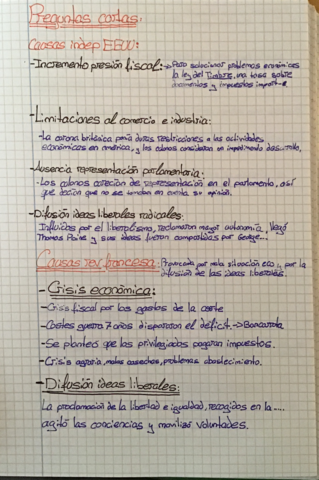 Preguntas cortas:
Causas indep EEUU:
-Incremento presión fiscal:→Para solucionar problemas económicos
la ley del Timbre, una tasa sobre
documentos y impuestos import
-Limitaciones al comercio e industria:
-La corona británica ponía duras restricciones a las actividades
económicas en américa, y los colonos consideraron un impedimento desarrollo.
-Ausencia representación parlamentaria:
-Los colonos carecían de representación en el parlamento, así
que decían que no se tenían en cuenta su opinión.
-Difusión ideas liberales radicales:
Influidos por el liberalismo, reclamaron mayor autonomía, llegó
Thomas Paine y sus ideas fueron compartidas por George...
Causas rev francesa: Provocada por mala situación eco y por la
difusión de las ideas liberales.
-Crisis económica:
-Crisis fiscal por los gastos de la corte
-Costes guerra 7 años dispararon el déficit.→Bancarrota
-Se planteó que los privilegiados pagaran impuestos.
-Crisis agraria, malas cosechas, problemas abastecimiento.
-Difusión ideas liberales:
La proclamación de la libertad e igualdad, recogidos en la ....
agitó las conciencias y movilizó voluntades.